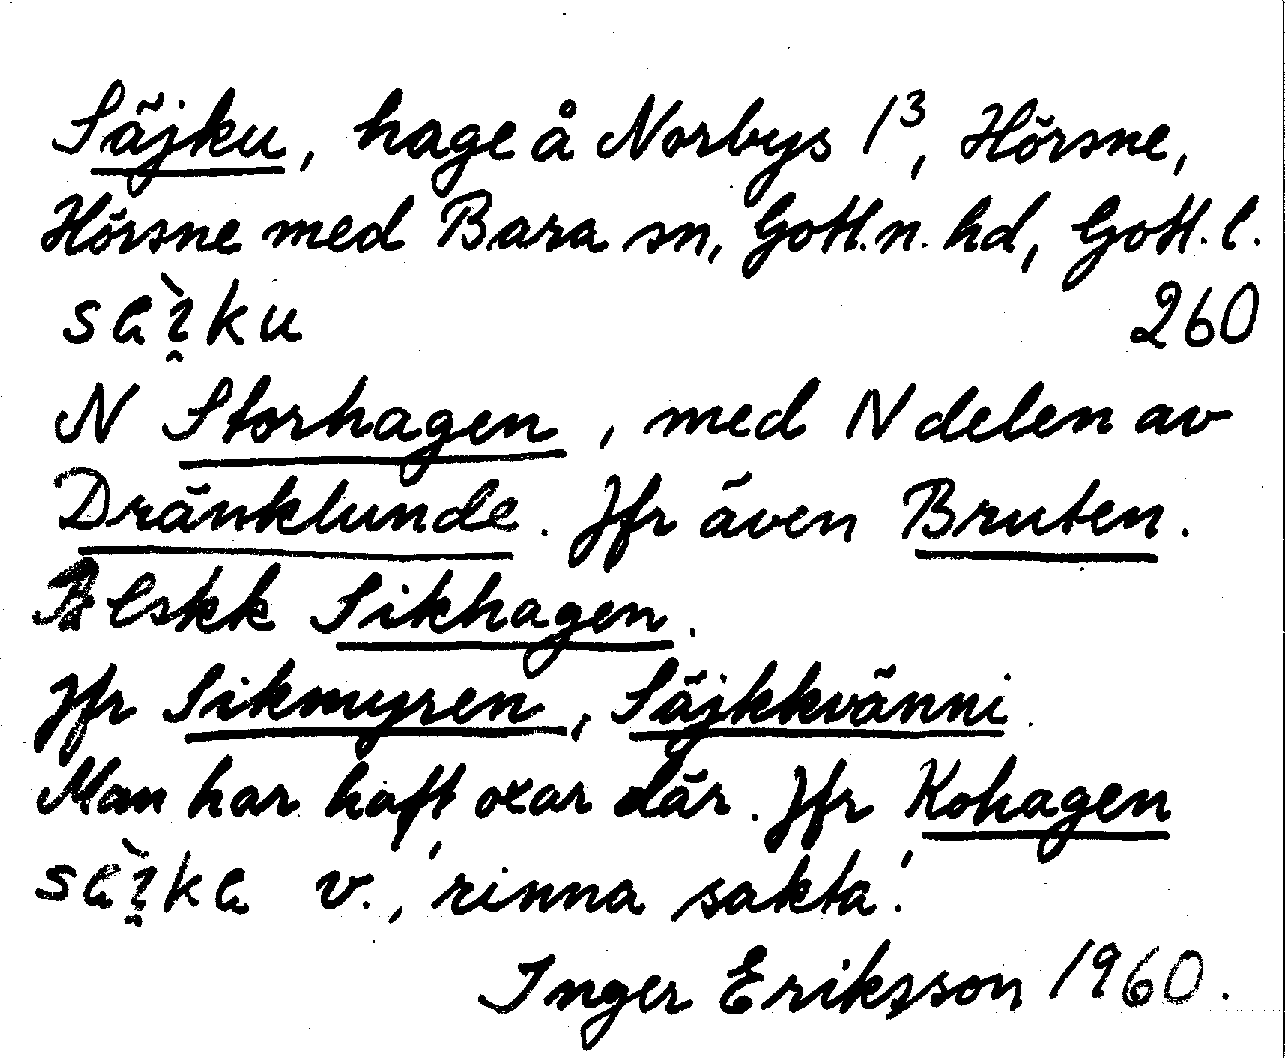 Säjku, hage å Norbys 1³, Hörsne,
Hörsne med Bara sn, Gotl. n. hd, Gotl. l.
saı̯̀ku 260
N Storhagen, med N delen av
Dränklunde. Jfr även Bruten.
Elskk Sikhagen.
Jfr Sikmyren, Säjkkvänni.
Man har haft oxar där. Jfr Kohagen
saı̯̀ka v., 'rinna sakta'.
Inger Eriksson 1960.